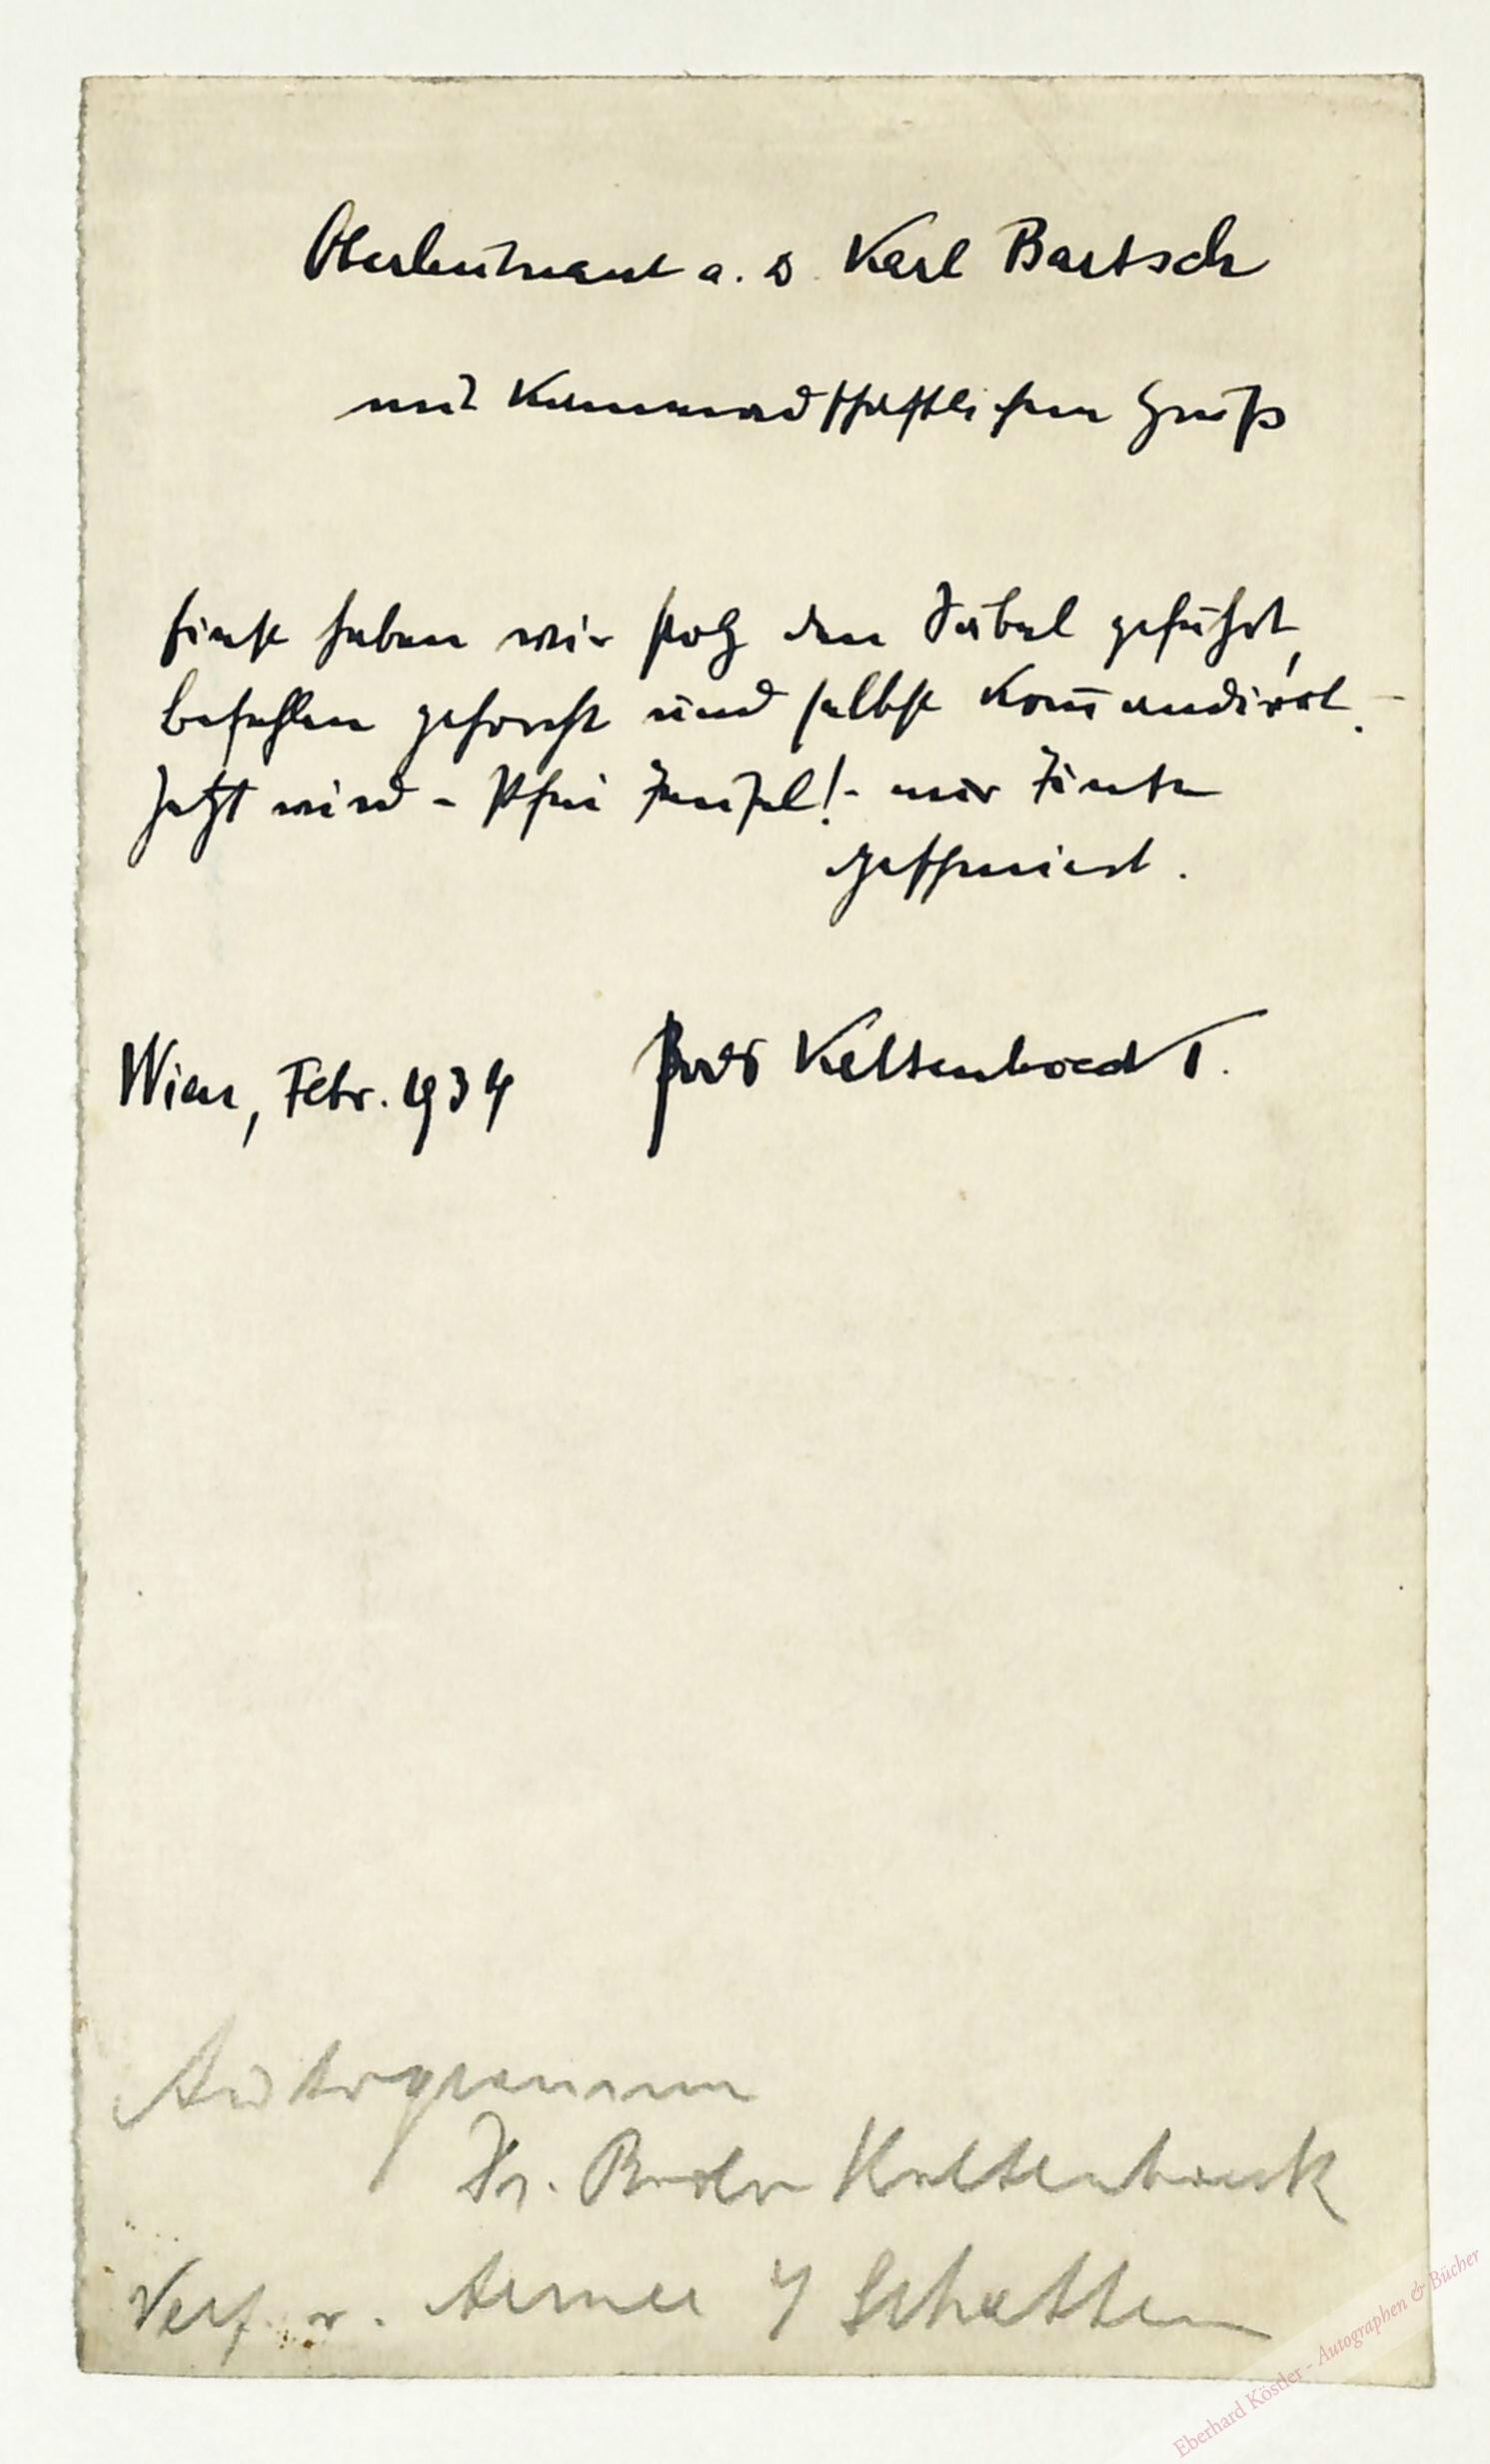 Oberleutnant a. D. Karl Bartsch
mit kameradschaftlichem Gruß
Einst haben wir stolz den Säbel geführt,
Befehlen gehorcht und selbst kom̅andiert. –
Jetzt wird – Pfui Teufel! – nur Tinte
geschmiert.
Wien, Febr. 1934
Bodo Kaltenboeck
Autogramm
Dr. Bodo Kaltenboeck
Verf. v. Armee Schatten
Eberhard Köstler - Autographen & Bücher